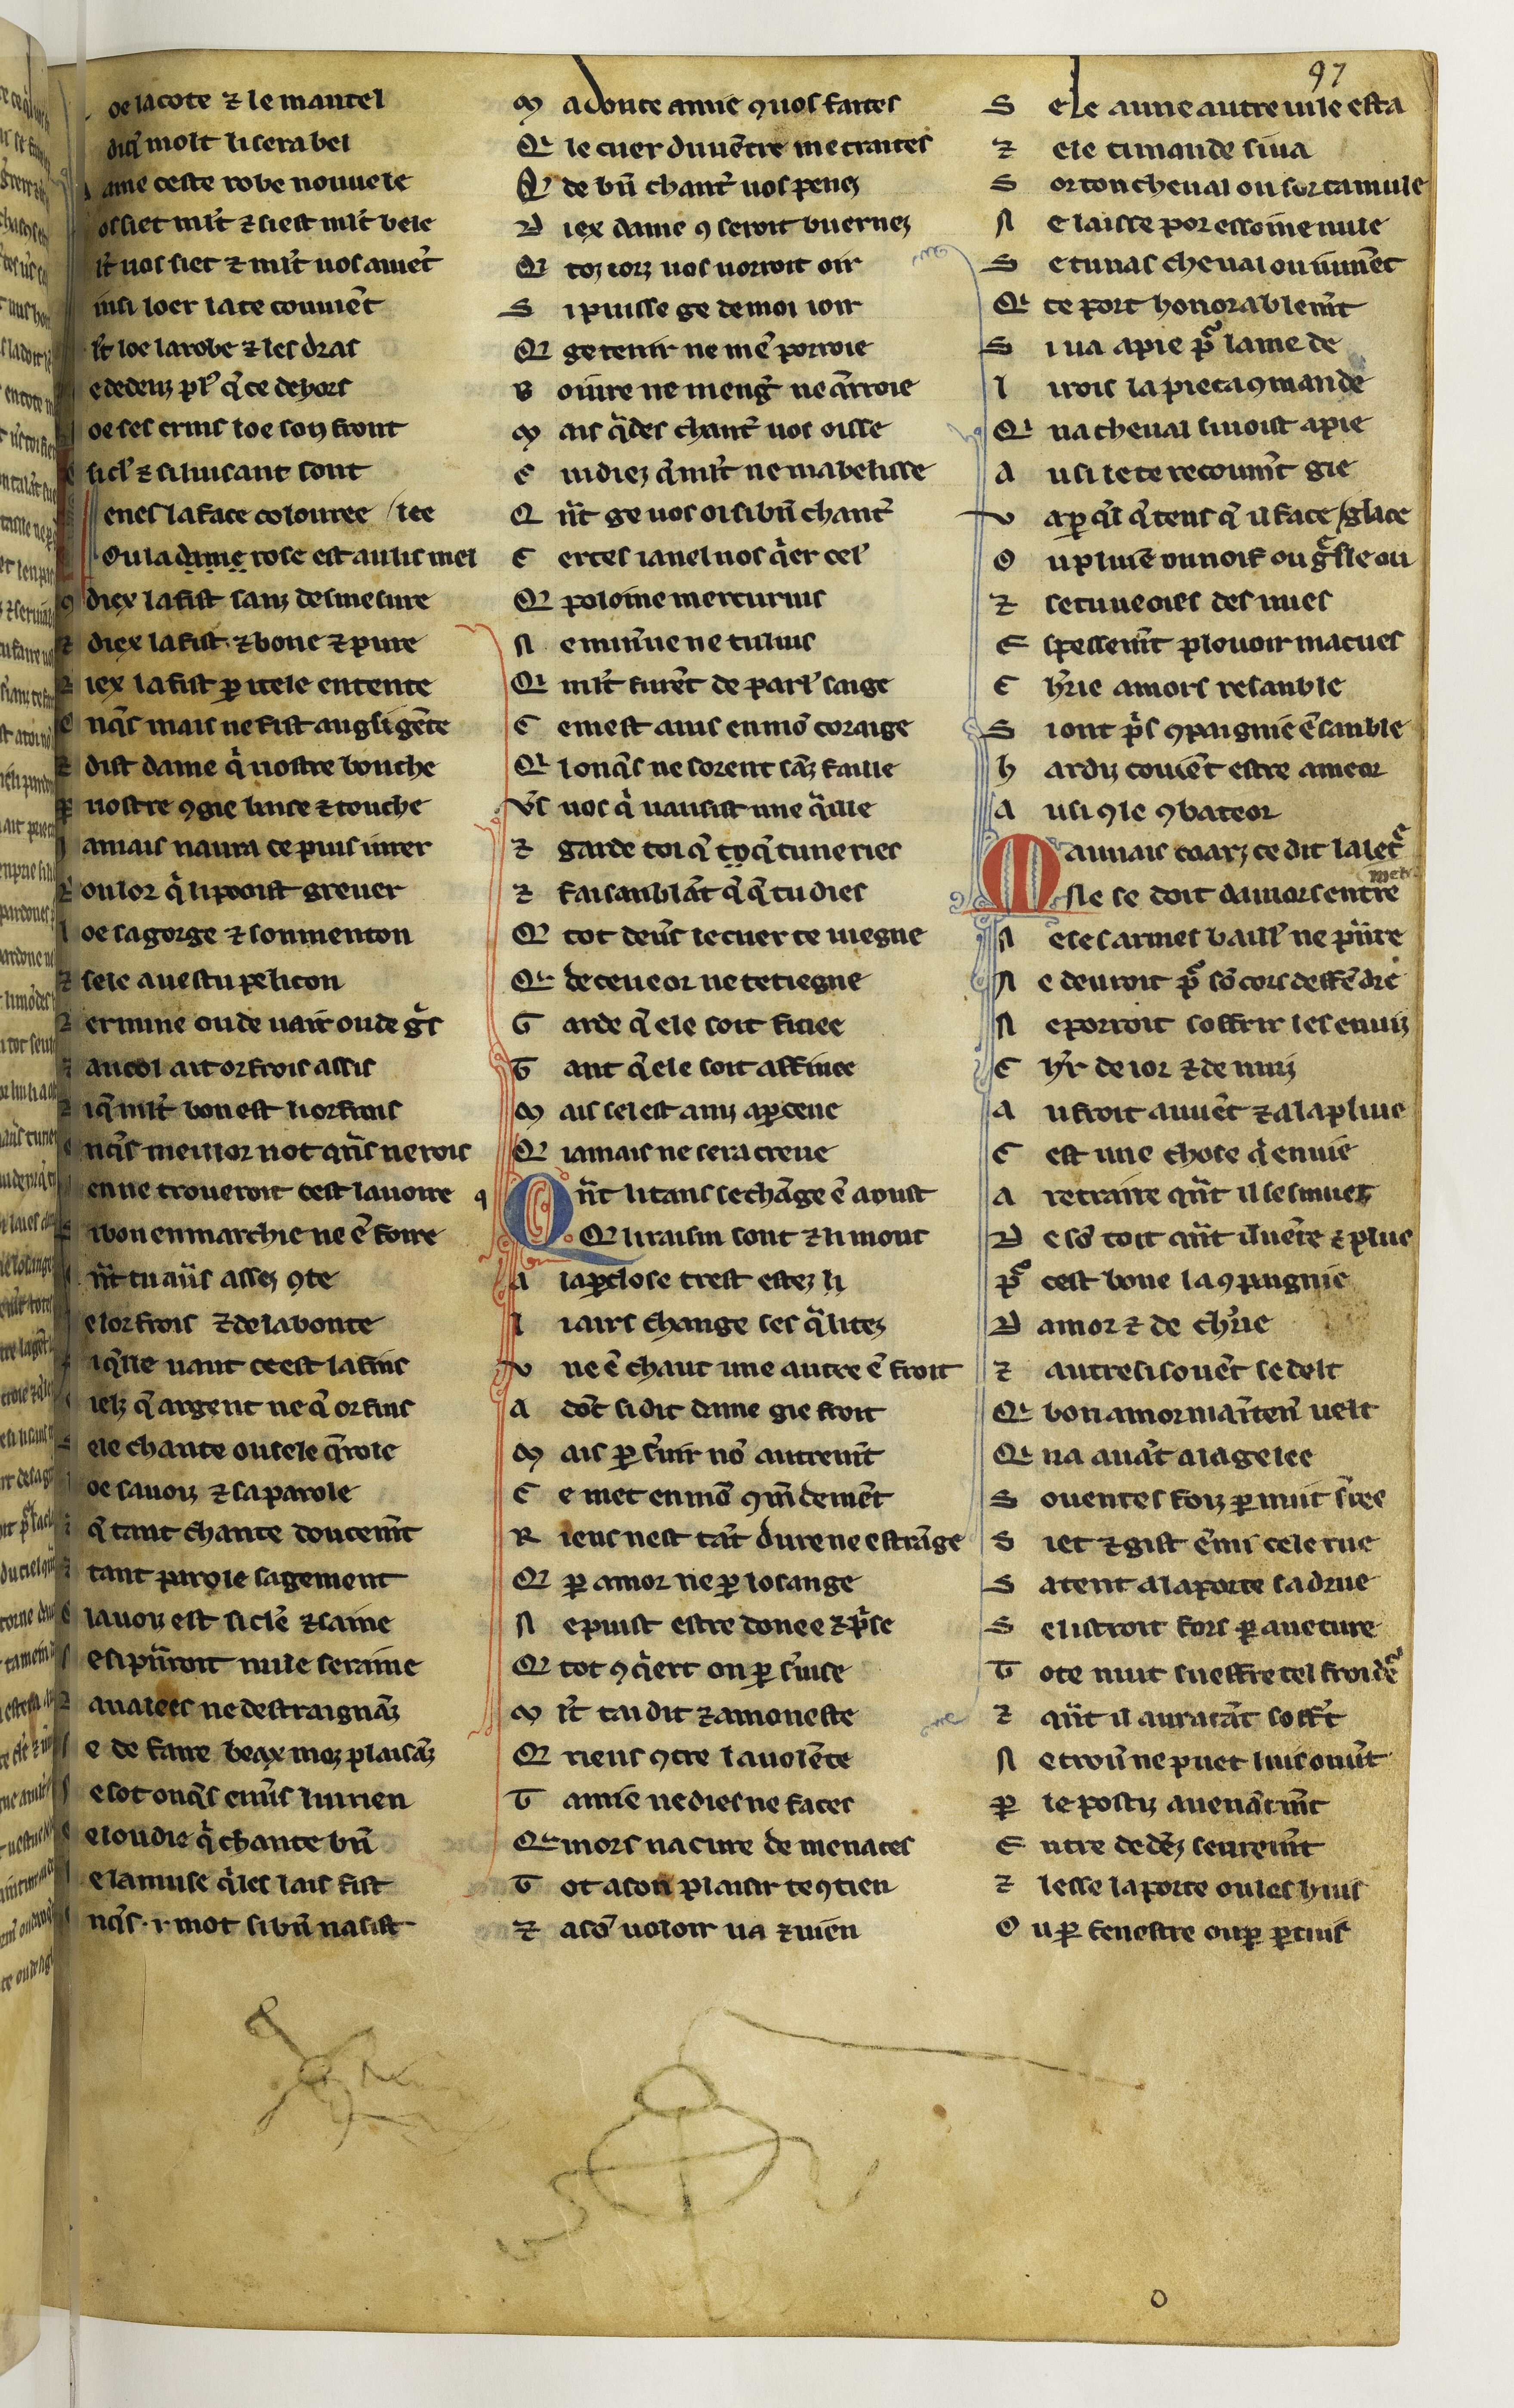 97
oe la cote ⁊ le mantel
diq̃ molt li sera bel
ame ceste robe nouuele
os siet ml't ⁊ si est ml't bele
l't uos siet ⁊ ml't uos auiẽt
insi loer la te couuiẽt
l't loe la robe ⁊ les dras
e dedenz pl' q̃ ce dehors
oe ses crins loe son front
si cl' ⁊ si luisant sont
enes la face colouree
Ou la dame rose est au lis mel lee
diex la fist sanz desmesure
diex la fist ⁊ bone ⁊ pure
iex la fist p itele entente
nq̃s mais ne fist au gligẽte
dist dame q̃ uostre bouche
uostre ꝯgie luise ⁊ touche
amais naura ce puis iuer
ou lor q̃ li poist greuer
oe sa gorge ⁊ son menton
sele a uestu pelicon
ermine ou de uair ou de g's
au col ait orfrois assis
iq̃ ml't bon est li orfrois
nq̃s meillor not q̃ns ne rois
en ne troueroit cest la uoire
i bon en marchie ne ẽ foire
n̄t tu auis assez ꝯte
e lorfrois ⁊ de la bonte
iq̃lle uaut ce est la fins
ielz q̃ argent ne q̃ or fins
ele chante ou sele q̃role
oe sa uoiz ⁊ sa parole
q̃ tant chante doucem̃t
tant parole sagement
la uoiz est si clẽ ⁊ saine
e si p̃iroit nule seraine
aualees ne destraignãz
e de faire beax moz plaisãz
e sot onq̃s eniu̾s lui rien
e lou die q̃ chante bñ
e la muse q̃ les lais fist
nq̃s .i. mot si bñ nasist
M a douce amie q̾ uos faites
Q̃ le cuer du uẽtre me traites
Q̃ de bñ chant' uos penez
D iex dame ꝯ seroit buer nez
Q̃ toz iorz uos uorroit oir
S i puisse ge de moi ioir
Q̃ ge tenir ne mẽ porroie
B oiure ne meng' ne q̃rroie
M ais q̃ des chant' uos oisse
C uidiez q̃ ml't ne mabelisse
Q n̄t ge uos oi si bñ chant'
C ertes ia nel uos q̃er cel'
Q̃ poloine mercurius
N e minu̾ue ne tulius
Q̃ ml't furẽt de parl' saige
C e mest auis en mõ coraige
Q̃ l onq̃s ne sorent sãz faille
V's uos q̃ uausist une q̃ille
⁊ garde toi q̃ tõ q̃ tu ne ries
⁊ fai sanblãt q̃ q̃ tu dies
Q̃ tot deu̾s le cuer te uiegne
Q̃ deceueor ne te tiegne
G arde q̃ ele soit fichee
T ant q̃ ele soit affinee
M ais sel est anz ap̃ceue
Q̃ iamais ne sera creue
Q n̄t li tans se chãge ẽ aoust
Q̃ li raisin sont ⁊ li moust
A la pclose trest estez li
L i airs change ses q̃litez
V ne ẽ chaut une autre ẽ froit
A dõt si dit dame gie froit
M ais p su̾ir nõ autrem̃t
C e met en mõ ꝯm̃demẽt
R iens nest tãt dure ne estrãge
Q̃ p amor ne p losange
N e puist estre donee ⁊ p̃se
Q̃ tot ꝯq̃ert on p su̾ise
M l't tai dit ⁊ amoneste
Q̃ riens ꝯtre la uolẽte
T amie ne dies ne faces
Q̃ mors na cure de menaces
T ot a son plaisir te ꝯtien
⁊ a sõ uoloir ua ⁊ uien
S ele a une autre uile esta
⁊ ele ti mande si ua
S or ton cheual ou sor ta mule
N e laisse por essoine nule
S e tu nas cheual ou iumẽt
Q̃ te port honorablem̃t
S i ua a pie p̃ lame de
L i rois la piec'a ꝯmande
Q̃ na cheual si uoist a pie
A usi le te recoum̃t gie
V ap q̃l q̃ tens q̃ il face
O u pluie ou noif ou g̃sle ou glace
⁊ se tu ueoies des nues
E spessem̃t plouoir macues
C h'rie amors resanble
S i ont p̃s ꝯpaignie ẽsanble
H ardiz couiẽt estre ameor
A usi ꝯ le ꝯbateor
M auuais coarz ce dit la let'
Ne se doit damors entre metr'
N e ses armes baill' ne p̃ñre
N e deuroit p̃ sõ cors deffẽdre
N e porroit soffrir les enuiz
C h'r de ior ⁊ de nuiz
A u froit au uẽt ⁊ a la pluie
C est une chose q̃ enuie
A retraire q̃nt il sesmuet
D e sõ toit q̃nt il uẽte ⁊ pluet
P̃ cest bone la ꝯpaignie
D amor ⁊ de ch'rie
⁊ autresi souẽt se delt
Q̃ bon amor maĩtenir uelt
Q̃ na auãt a la gelee
S ouentes foiz p nuit su̾ree
S iet ⁊ gist ẽmi cele rue
S atent a la porte sa drue
S el istroit fors p auẽture
T ote nuit sueffre tel froidẽ'
⁊ q̃nt il aura tãt soff't
N e trou̾ ne puet luis ouu̾t
P le postiz auenãtm̃t
E ntre dedẽz seurem̃t
⁊ lesse la porte ou les huis
O u p fenestre ou p ptuis